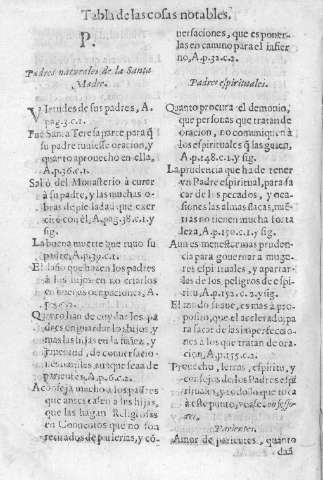 Tabla de las cosas notables.
P.
Padres naturales de la Santa
Madre.
Virtudes de sus padres, A.
pag. 3. c. 1.
Fue Santa Teresa parte para q̃
su padre tuuiesse oracion, y
quanto aprouecho en ella,
A. p. 36. c. 1.
Salió del Monasterio à curar
à su padre, y las muchas o-
bras de piedad que exer-
citò con èl, A. pag. 38. c. 1. y
sig.
La buena muerte que tuuo su
padre, A. p. 39. c. 1.
El daño que hazen los padres
à los hijos en no criarlos
en buenas ocupaciones, A.
Quanto han de cuydar los pa-
dres en guardar los hijos, y
mas las hijas en la niñez, y
juuentud, de conuersacio-
nes inutiles, aunque sean de
parientes, A. p. 6. c. 2.
Aconseja mucho à los padres
que antes casen à las hijas,
que las hagan Religiosas
en Conuentos que no son
recatados de parlerias, y cõ-
uersaciones, que es poner-
las en camino para el infier
no, A. p. 32. c. 2.
Padres espirituales.
Quanto procura el demonio,
que personas que tratan de
oracion, no comuniquen à
los espirituales q̃ las guien,
A. p. 148. c. 1. y sig.
La prudencia que ha de tener
vn Padre espiritual, para sa
car de los pecados, y oca-
siones las almas flacas, miẽ-
tras no tienen mucha forta
leza, A. p. 150. c. 1. y sig.
Aun es menester mas pruden-
cia para gouernar a muge-
res espirituales, y apartar-
las de los peligros de espi-
ritu, A. p. 152. c. 2. y sig.
El modo suaue, es mas à pro-
posito, que el acelerado, pa
ra sacar de las imperfeccio-
nes à los que tratan de ora-
cion, A. p. 155. c. 2.
Prouecho, letras, espiritu, y
consejos de los Padres espi
rituales, y todo lo que toca
à este punto, vease
Parientes.
Amor de parientes, quanto
dañ